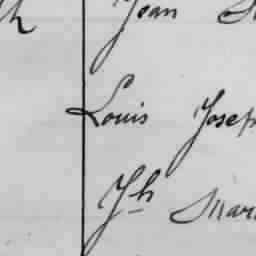 Jean
Louis Josep
Jh Mari